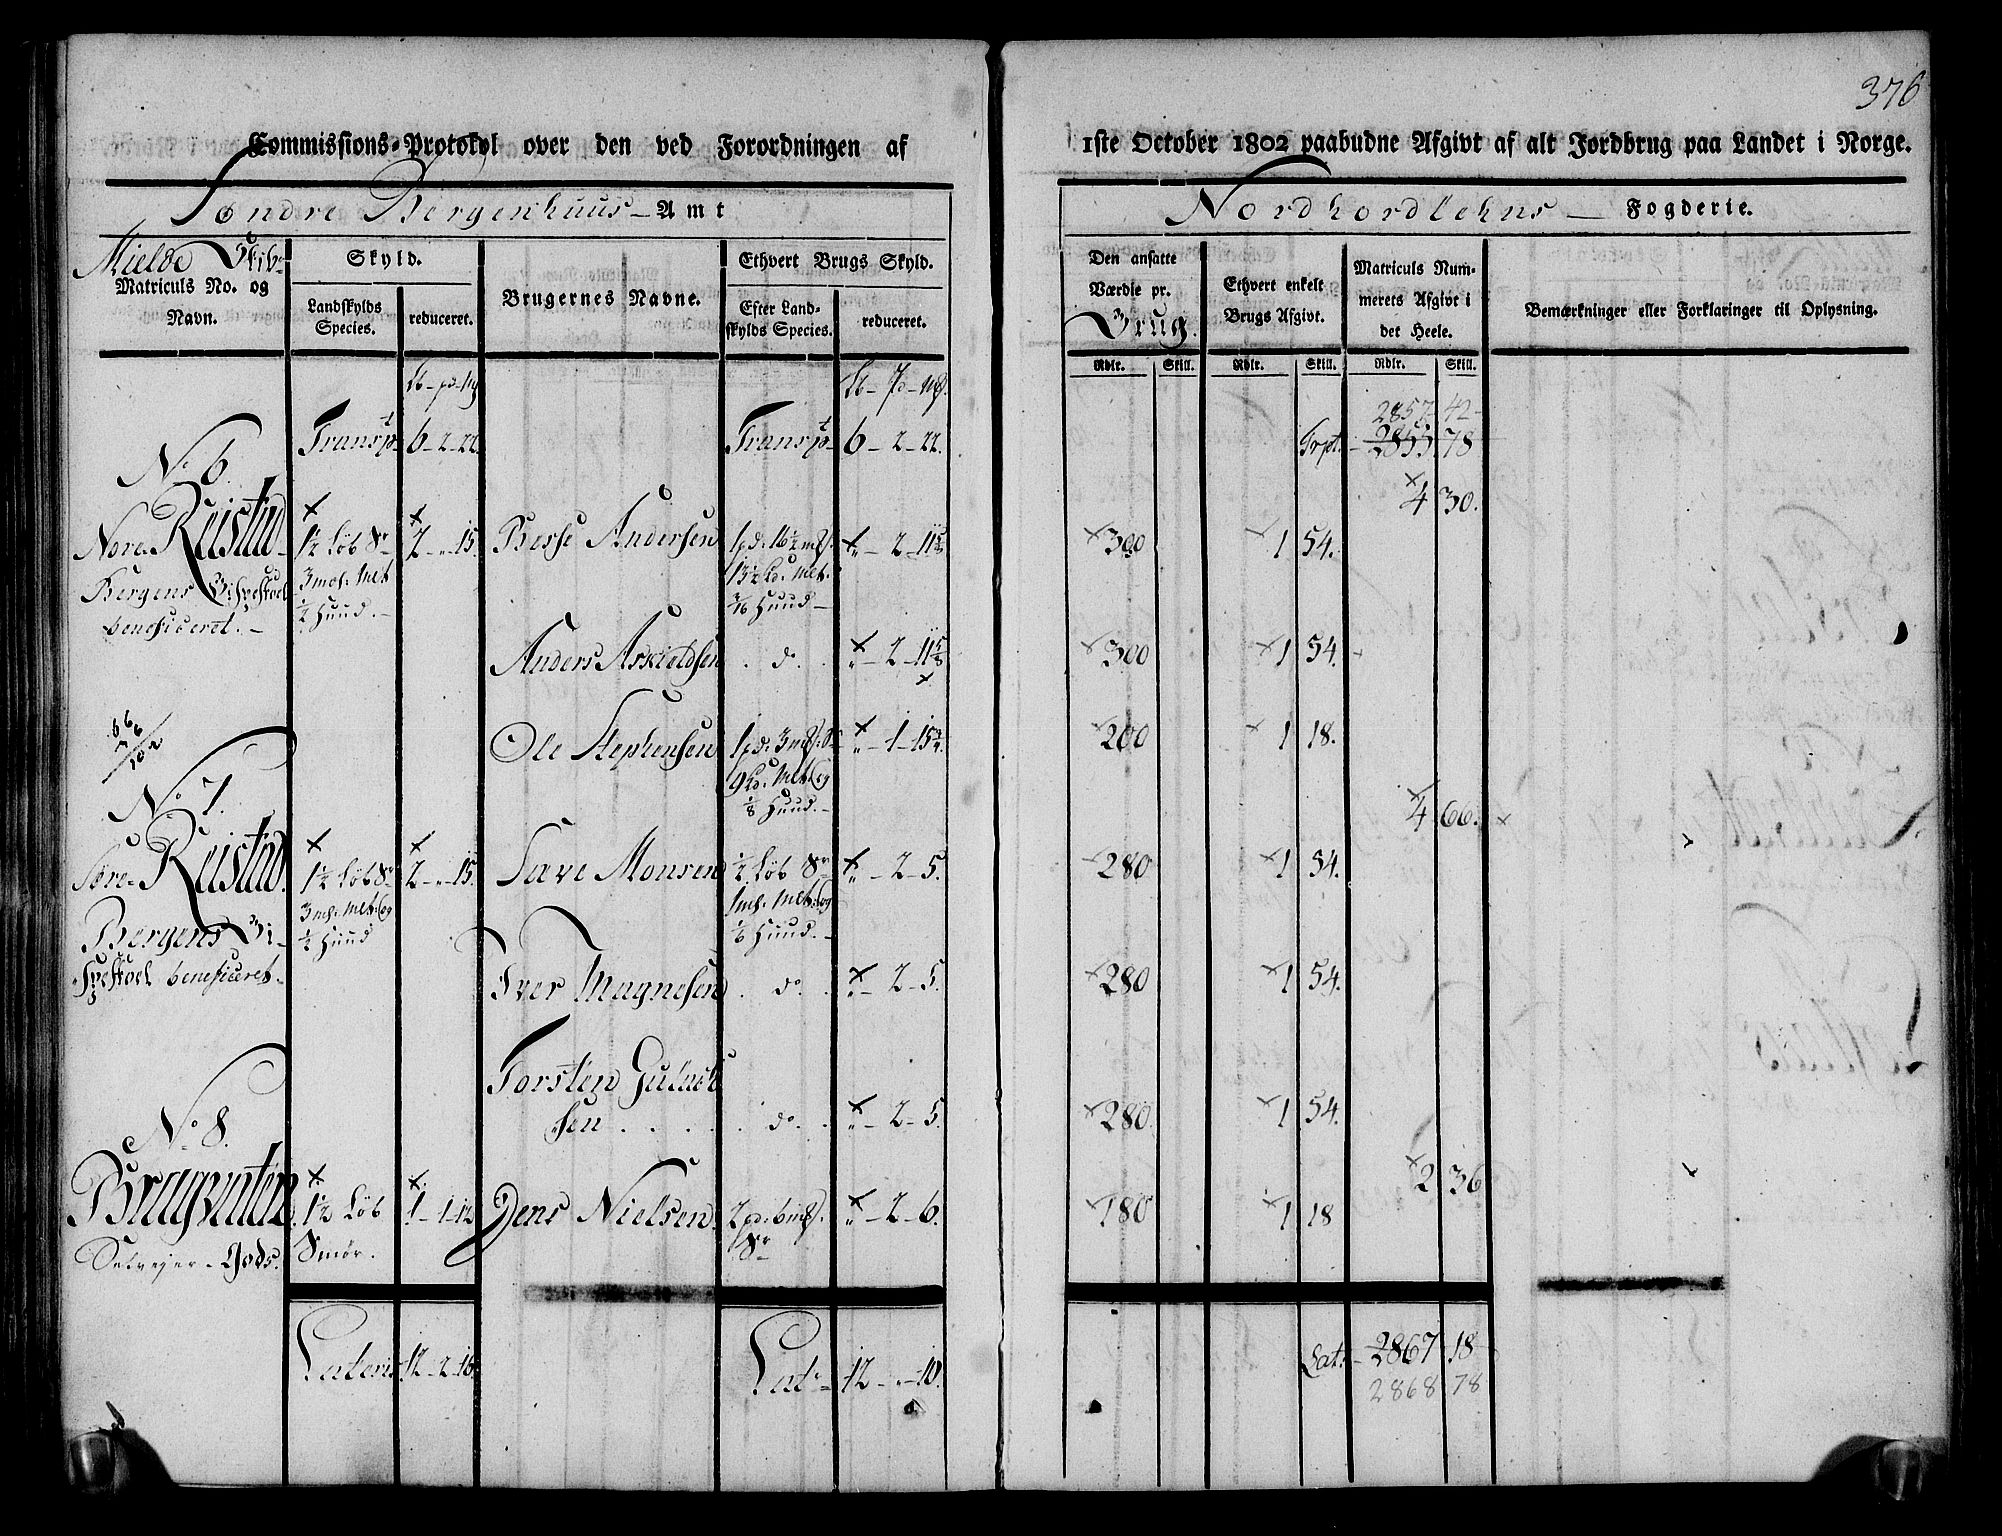 376
Commissions-Protokol over den ved Forordningen af 1ste October 1802 paabudne Afgivt af alt Jordbrug paa Landet i Norge.
Søndre Bergenhuus Amt
Nordhordlehns Fogderie.
Mielde Skibr
Matriculs No. og Navn.
Skyld.
Landskylds Species.
reduceret.
Brugernes Navne.
Ethvert Brugs Skyld.
Efter Landskylds Species.
reduceret.
Den ansatte Værdie pr. Brug.
Ethvert enkelt Brugs Afgivt.
Matriculs Nummerets Afgivt i det Heele.
Bemærkninger eller Forklaringer til Oplysning.
Rdlr. Skill. Rdlr. Skill. Rdlr. Skill.
2857 42
Transpt 6-2-22. Transpt 6-2-22. Trpt. 2855 78
No 6.
4 30.
Nore Reistad 1½ Løb Sr 2-"-15. Besse Andersen 1pd. 16½ mrk. "-2-11⅝ 300 1 54.
Bergens Bispestoel
beneficeret.
½ Huud.
3/16 Huud
Anders Askieldsen do "-2-11⅝ 300 1 54.
Ole Stephensen 1pd. 3 mrk. "-1-15¾ 200 1 18.
⅛ Huud.
No 7.
4 66.
Søre Reistad 1½ Løb Sr 2-"-15. Save Monsen ½ Løb Sr "-2-5. 280 1 54.
Bergens Bi-
spestoel beneficeret.
½ Huud
1/6 Huud.
Iver Magnesen do "-2-5. 280 1 54.
Torsten Gulach
sen do. "-2-5. 280 1 54.
No 8.
2 36
Bragvaten 1½ Løb 1-1-12 Jens Nielsen 2pd. 6 mrk. "-2-6. 180 1 18
Selvejer Gods. Smør. Sr
Lateris 12-2-16. Lat. 12-"-10. Lat. 2867 18
2868 78